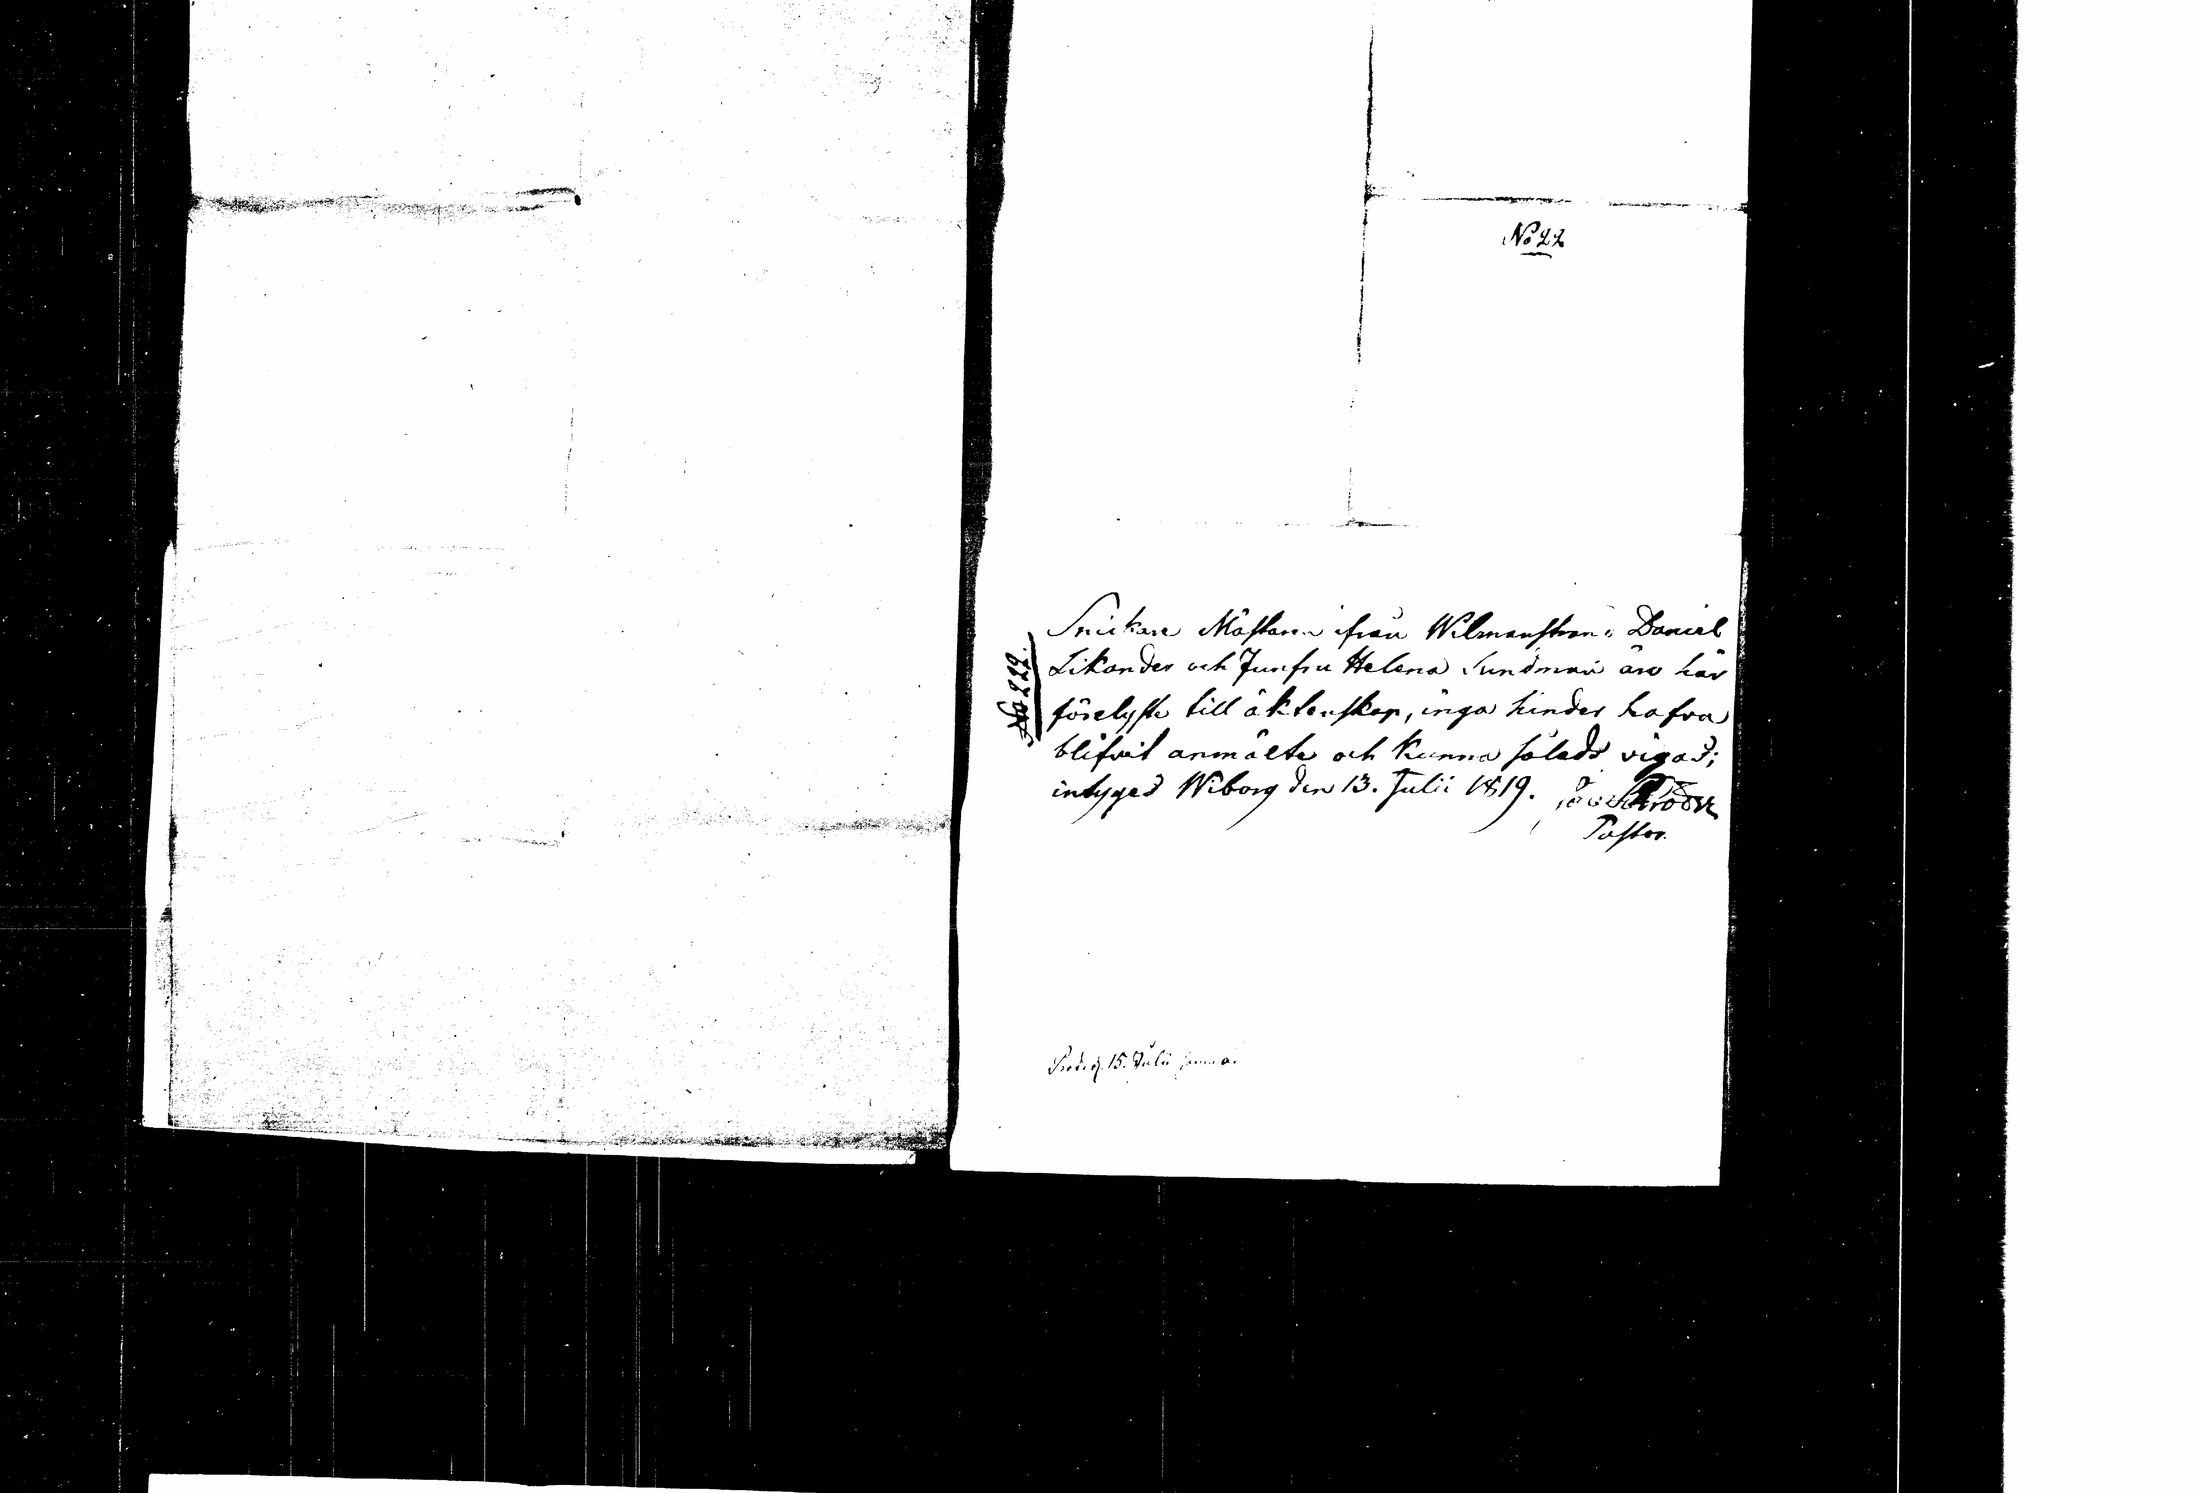 No 22
No 229.
Snickare Mästaren ifrån Wilmanstrand Daniel
Likander och Junfru Helena Sundman äro här
förelyste till äktenskap, inga hinder hafva
blifvit anmälte och kunna således vigas;
intyges Wiborg den 13. Julii 1819.
Pastor.
15. Julii samma